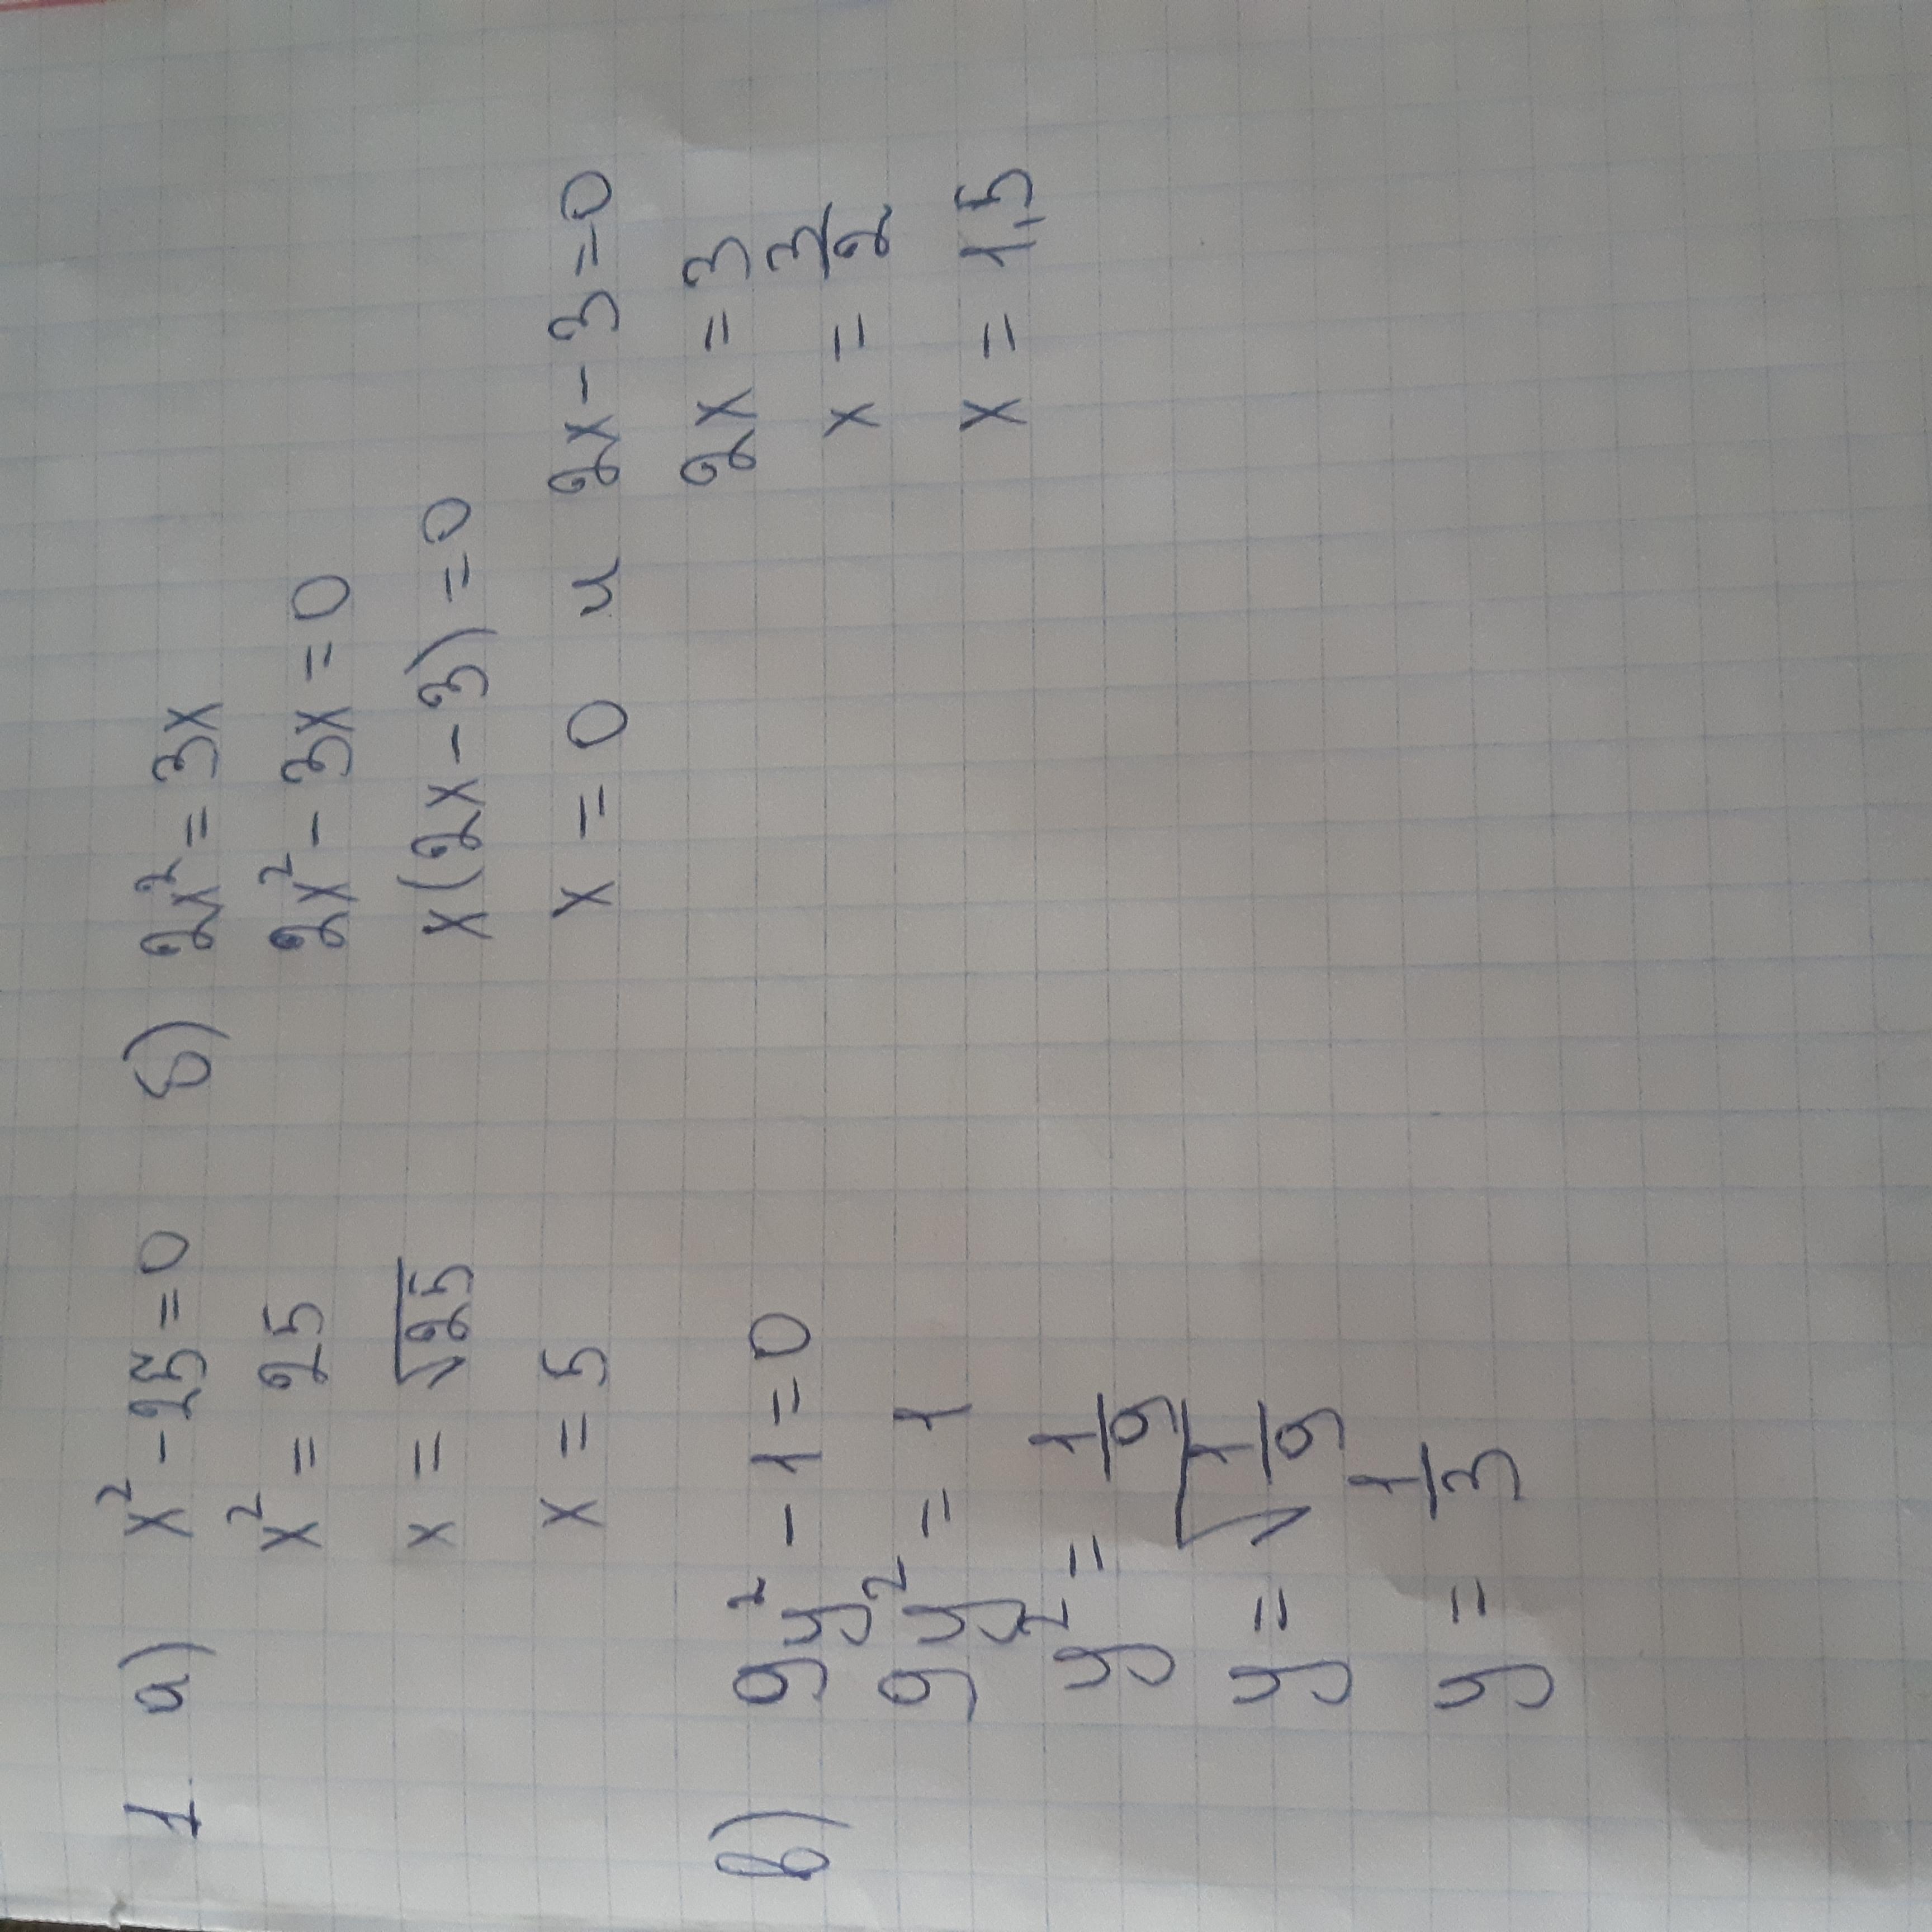 1. а) x² - 25 = 0
x² = 25
x = √25
x = 5
б) 2x² = 3x
2x² - 3x = 0
x(2x - 3) = 0
x = 0 и 2x - 3 = 0
2x = 3
x = 3/2
x = 1,5
в) 9y² - 1 = 0
9y² = 1
y² = 1/9
y = √1/9
y = 1/3